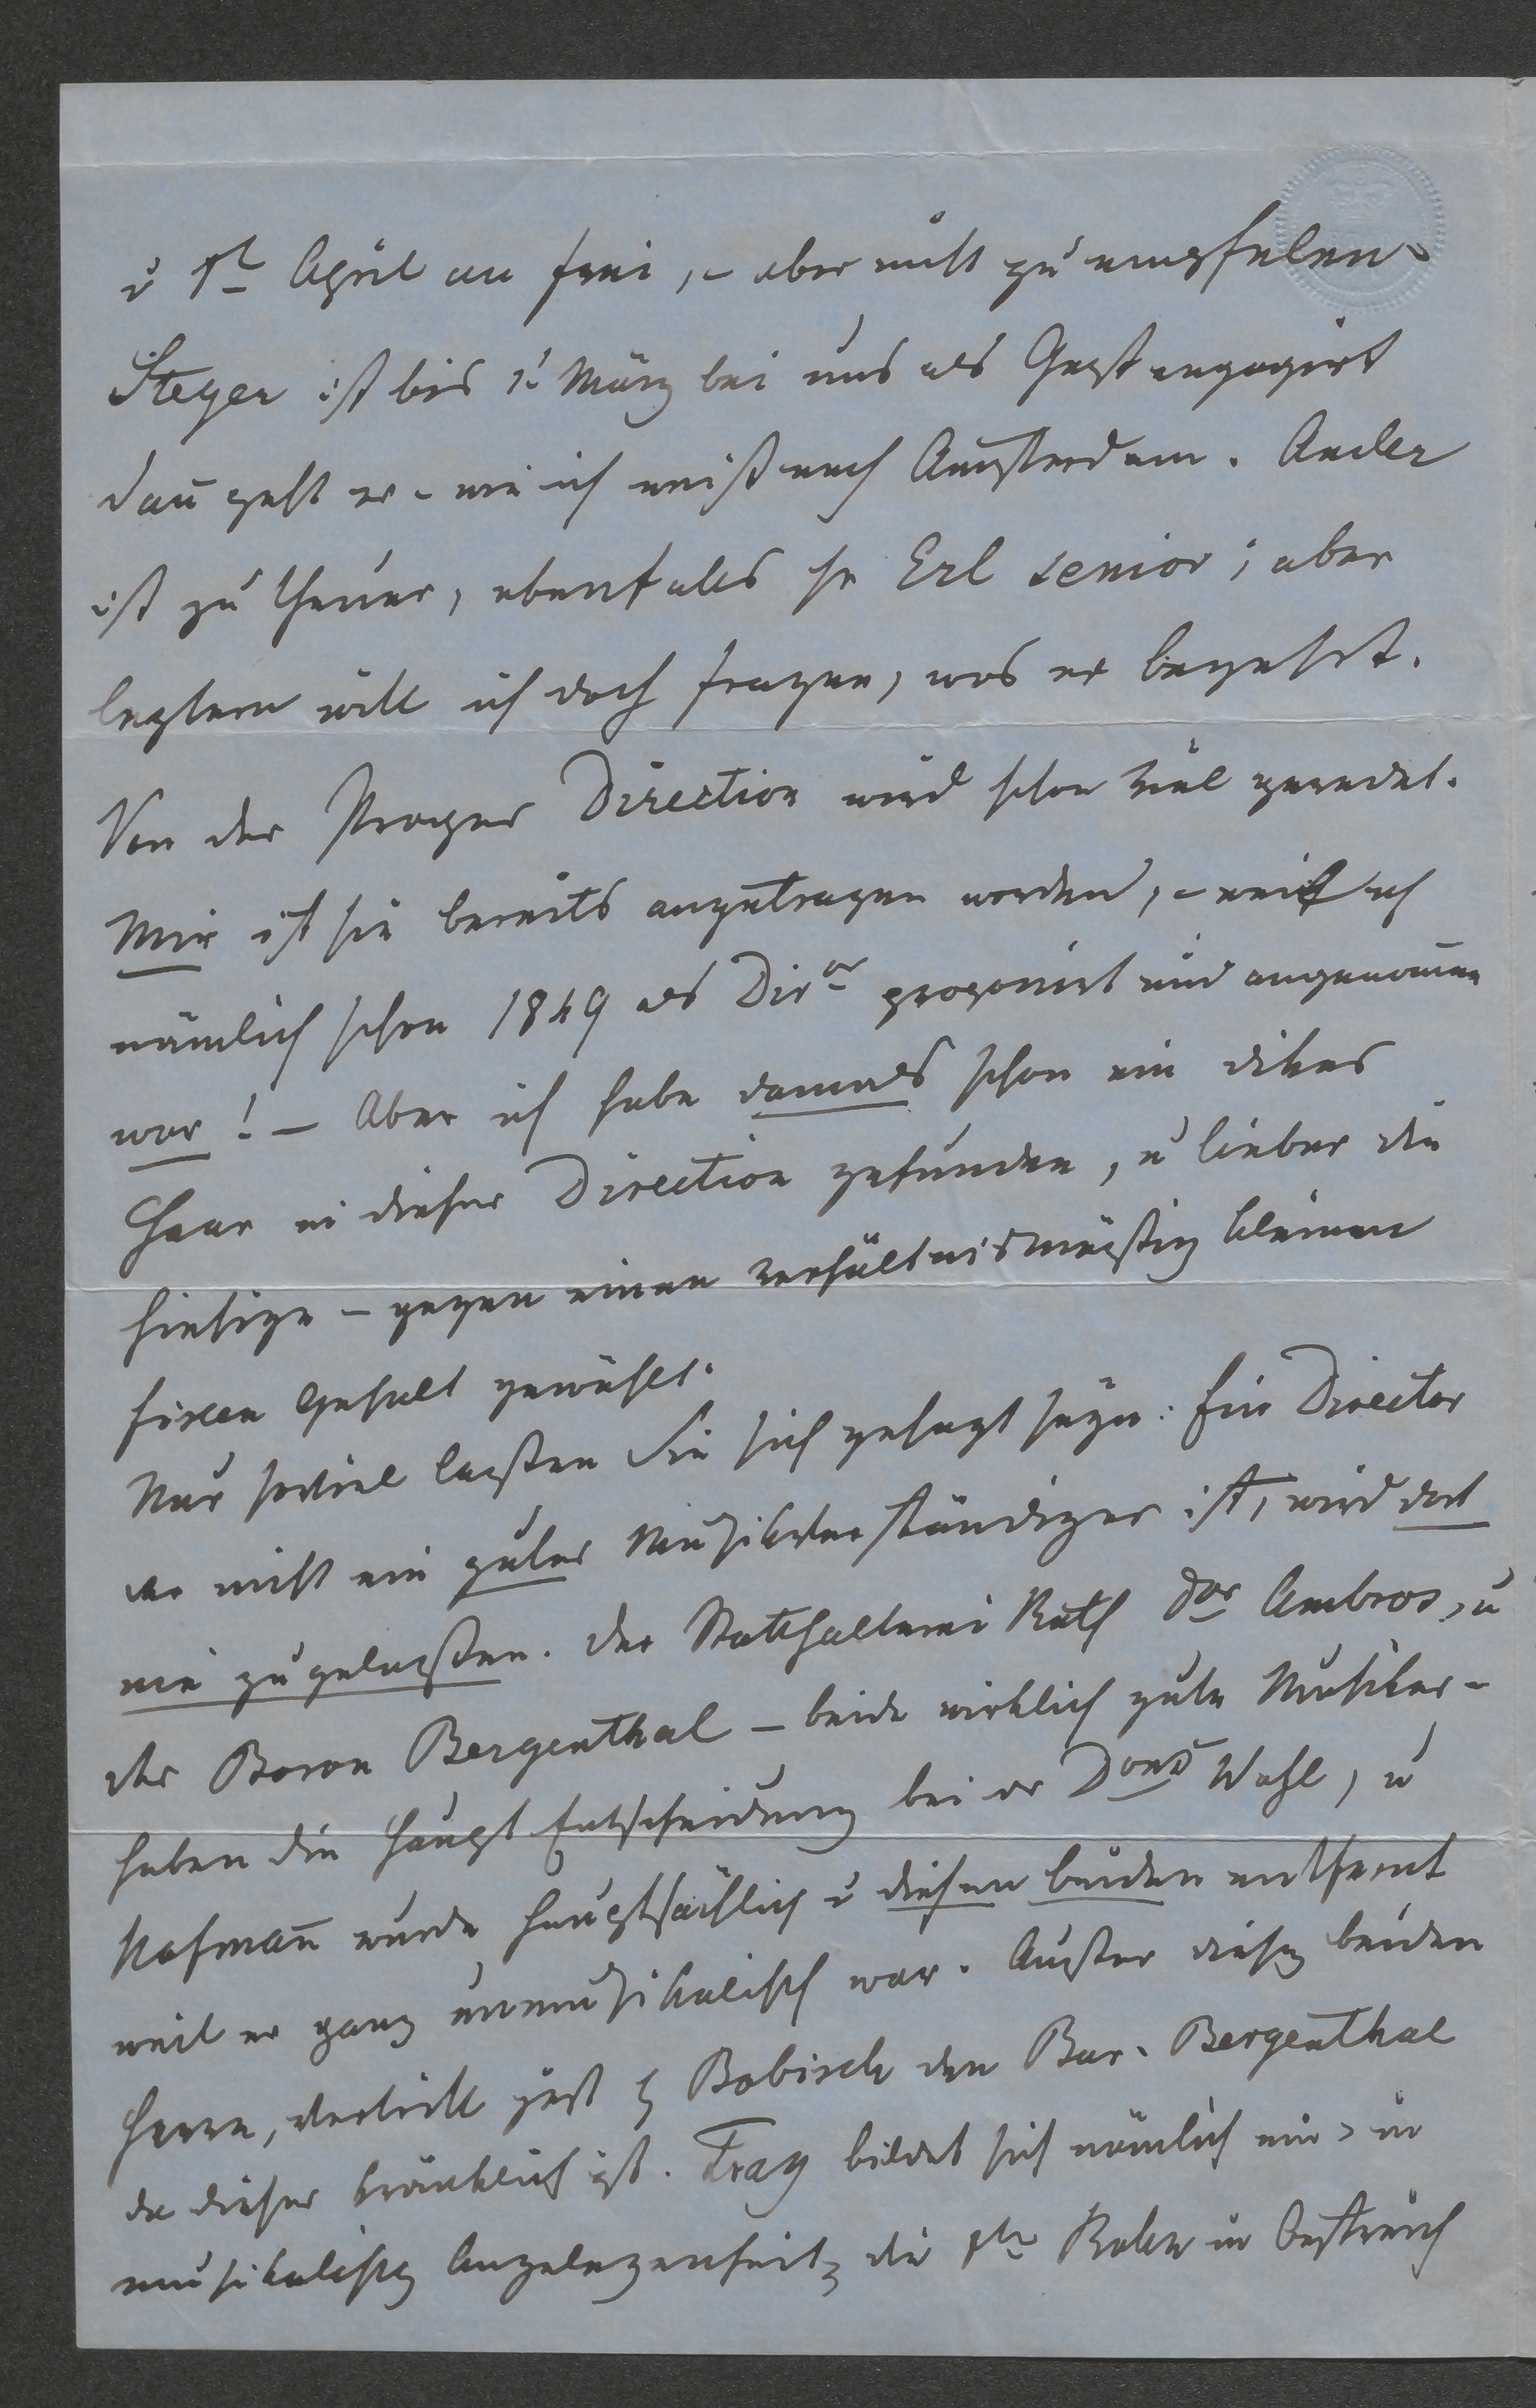 v 1t April an frei, – aber nicht zu empfelen.
Steger ist bis 1t März bei uns als Gast engagirt
dan̄ geht er – wie ich weiß nach Amsterdam. Ander
ist zu theuer, ebenfalls hr Erl senior; aber
leztern will ich doch fragen, was er begehrt.
Von der Prager Direction wird schon viel geredet.
Mir ist sie bereits angetragen worden, – weil ich
nämlich schon 1849 als Diror proponirt und angenom̄en
war! – Aber ich habe damals schon ein dikes
Haar in dieser Direction gefunden, u lieber die
hiesige – gegen einen verhältnismäßig kleinen
fixen Gehalt gewählt.
Nur soviel laßen Sie sich gesagt seyn: Ein Director
der nicht ein guter Musikverständiger ist, wird dort
nie zugelaßen. Der Statthalterei Rath Dor Ambros, u
der Baron Bergenthal – beide wirklich gute Musiker –
haben die Haupt Entscheidung bei der Dons Wahl, u
Hofman̄ wurde hauptsächlich v diesen beiden entfernt
weil er ganz unmusikalisch war. Außer diesen beiden
Herrn, vertritt jezt H Bobisch den Bar. Bergenthal
da dieser kränklich ist. Prag bildet sich nämlich ein, in
musikalischen Angelegenheiten die 1te Rolle in Oestreich